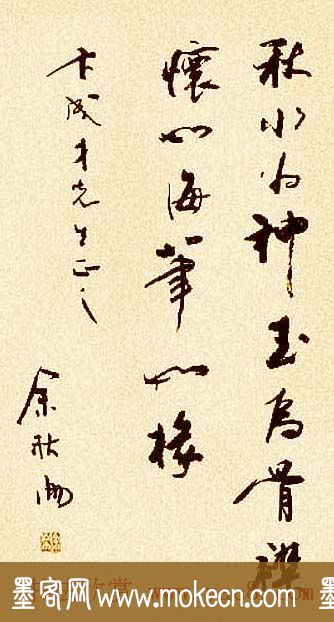 秋水为神玉為骨襟
懷如海筆如椽
卞成才先生正之
余秋雨
墨客网 www.mokecn.com